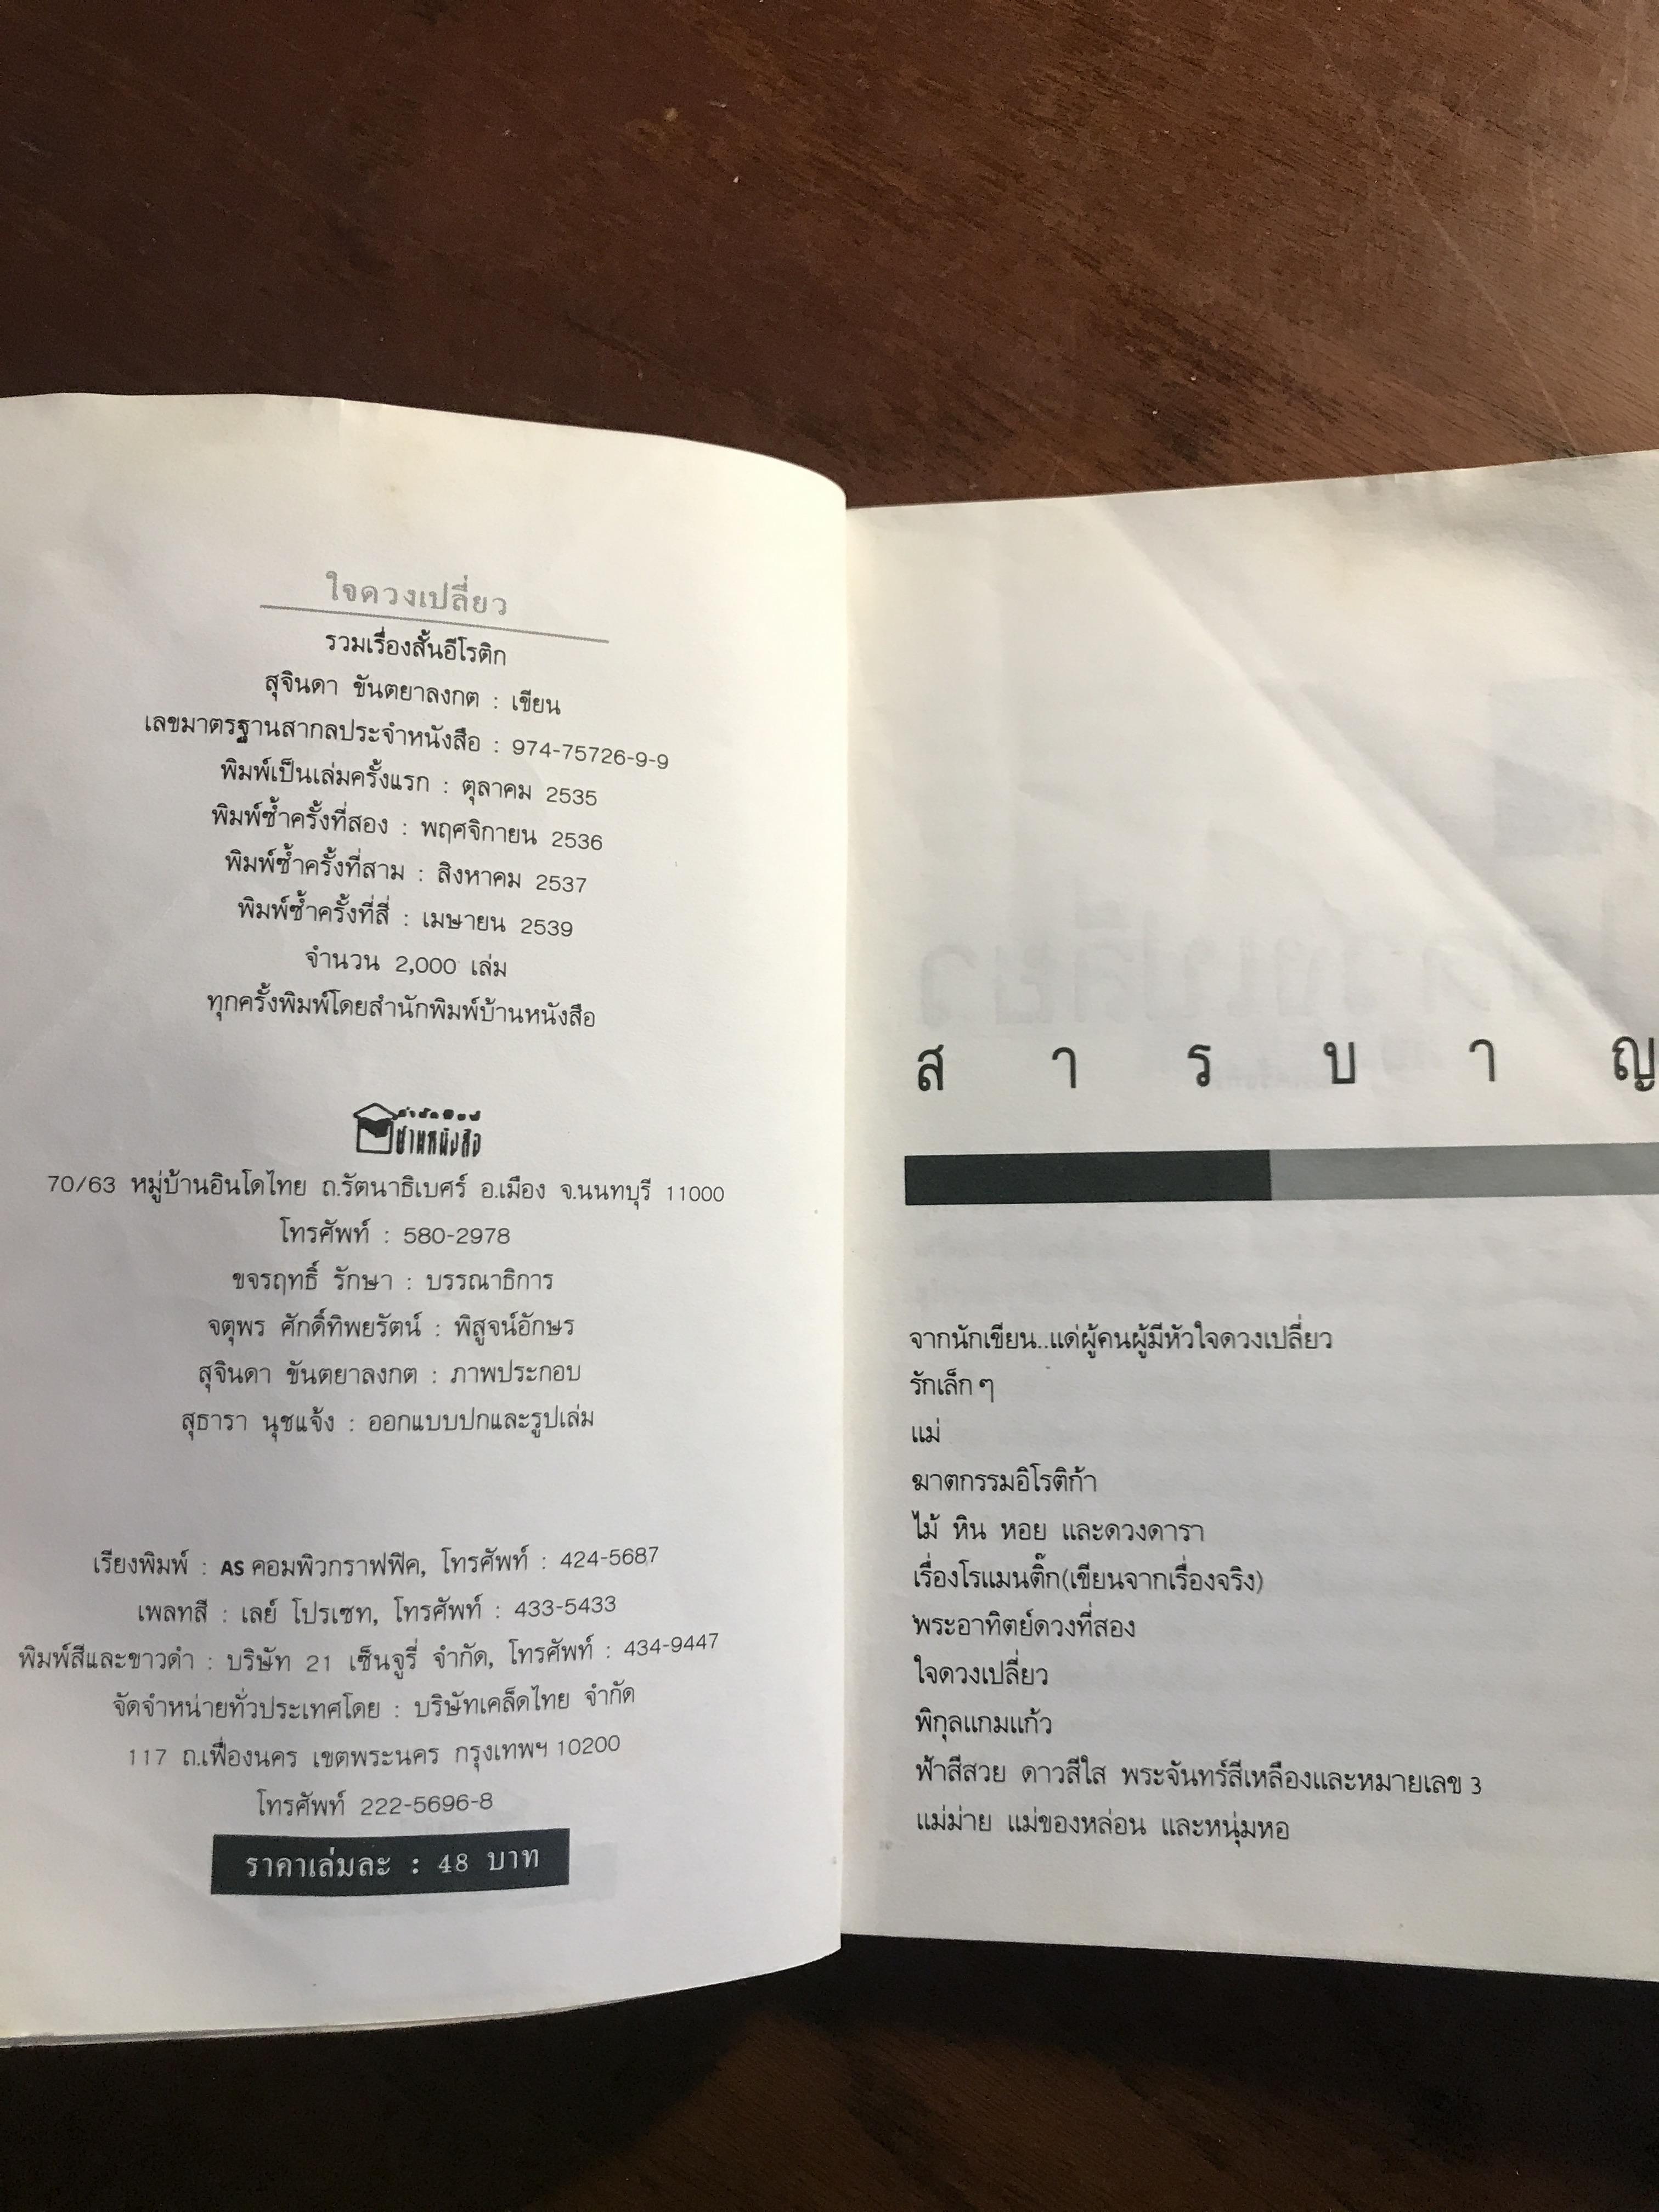 ใจดวงเปลี่ยว
รวมเรื่องสั้นอีโรติก
สุจินดา ขันตยาลงกต : เขียน
เลขมาตรฐานสากลประจำหนังสือ : 974-75726-9-9
พิมพ์เป็นเล่มครั้งแรก : ตุลาคม 2535
พิมพ์ซ้ำครั้งที่สอง : พฤศจิกายน 2536
พิมพ์ซ้ำครั้งที่สาม : สิงหาคม 2537
พิมพ์ซ้ำครั้งที่สี่ : เมษายน 2539
จำนวน 2,000 เล่ม
ทุกครั้งพิมพ์โดยสำนักพิมพ์บ้านหนังสือ
บ้านหนังสือ
70/63 หมู่บ้านอินโดไทย ถ.รัตนาธิเบศร์ อ.เมือง จ.นนทบุรี 11000
โทรศัพท์ : 580-2978
ขจรฤทธิ์ รักษา : บรรณาธิการ
จตุพร ศักดิ์ทิพยรัตน์ : พิสูจน์อักษร
สุจินดา ขันตยาลงกต : ภาพประกอบ
สุธารา นุชแจ้ง : ออกแบบปกและรูปเล่ม
เรียงพิมพ์ : AS คอมพิวกราฟฟิค, โทรศัพท์ : 424-5687
เพลทสี : เลย์ โปรเซท, โทรศัพท์ : 433-5433
พิมพ์สีและขาวดำ : บริษัท 21 เซ็นจูรี่ จำกัด, โทรศัพท์ : 434-9447
จัดจำหน่ายทั่วประเทศโดย : บริษัทเคล็ดไทย จำกัด
117 ถ.เฟื่องนคร เขตพระนคร กรุงเทพฯ 10200
โทรศัพท์ 222-5696-8
ราคาเล่มละ : 48 บาท
ส า ร บ า ญ
จากนักเขียน..แด่ผู้คนผู้มีหัวใจดวงเปลี่ยว
รักเล็ก ๆ
แม่
ฆาตกรรมอิโรติก้า
ไม้ หิน หอย และดวงดารา
เรื่องโรแมนติ๊ก(เขียนจากเรื่องจริง)
พระอาทิตย์ดวงที่สอง
ใจดวงเปลี่ยว
พิกุลแกมแก้ว
ฟ้าสีสวย ดาวสีใส พระจันทร์สีเหลืองและหมายเลข 3
แม่ม่าย แม่ของหล่อน และหนุ่มหอ